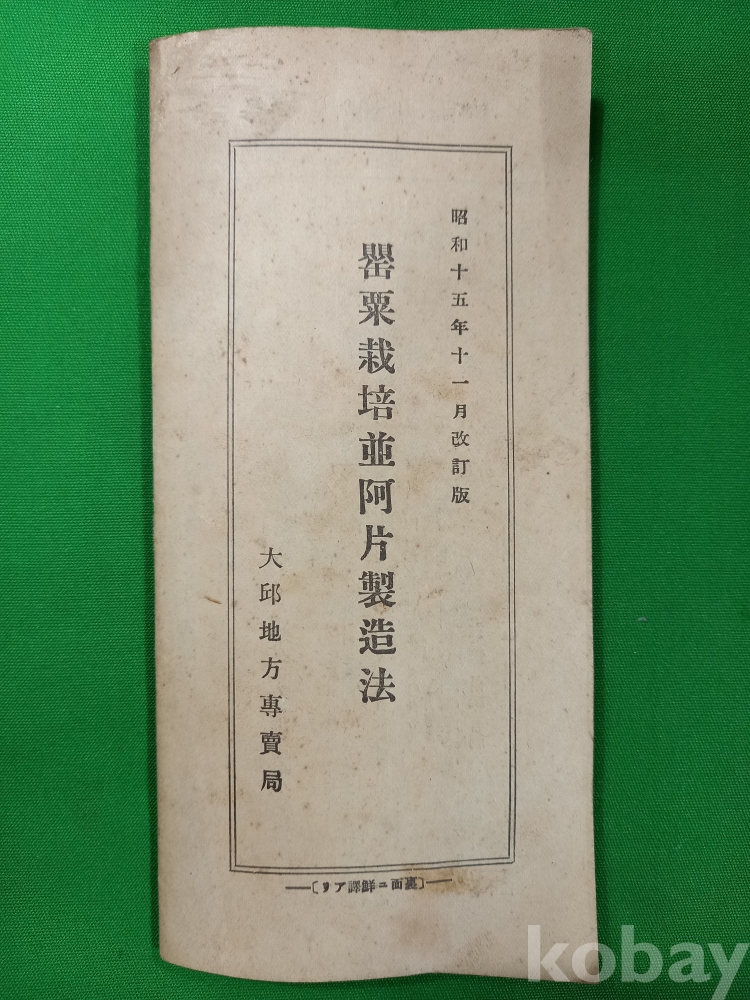 昭和十五年十一月改訂版
罌粟栽培並阿片製造法
大邱地方專賣局
〔裏面ニ鮮譯アリ〕
kobay